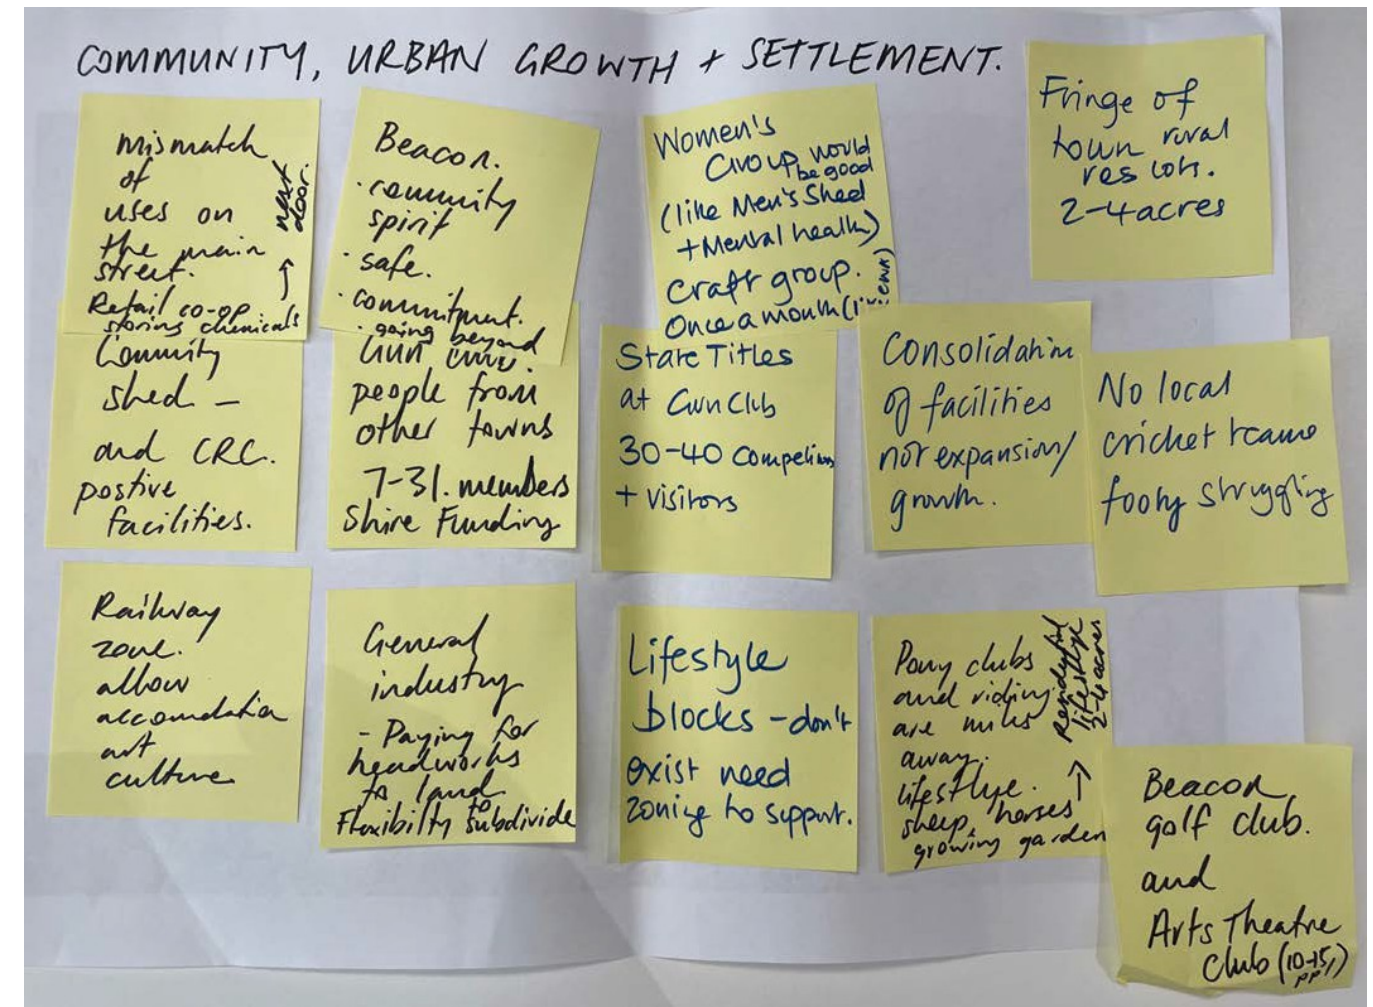 COMMUNITY, URBAN GROWTH + SETTLEMENT.
mismatch
of
uses on
the main
street.
Retail co-op
storing chemicals
next
door.
Beacon.
· community
spirit
· safe.
· commitment.
· going beyond
Women's
Group would
be good
(like Men's Shed
+ Mental health)
craft group.
Once a month
Fringe of
town rural
res lots.
2-4 acres
Community
shed -
and CRC.
postive
facilities.
Gun
people from
other towns
7-31. members
Shire Funding
State Titles
at Gun Club
30-40
+ visitors
Consolidation
of facilities
not expansion/
growth.
No local
cricket teams
footy struggling
Railway
zone.
allow
accomodation
art
culture
General
industry
- Paying for
headworks
to land.
Flexibilty to subdivide
Lifestyle
blocks - don't
exist need
zoning to support.
Pony clubs
and riding
are miles
away.
lifestlye.
sheep, horses
growing garden
lifestlye
2-4 acres
Beacon
golf club.
and
Arts Theatre
Club (10-15
pp)